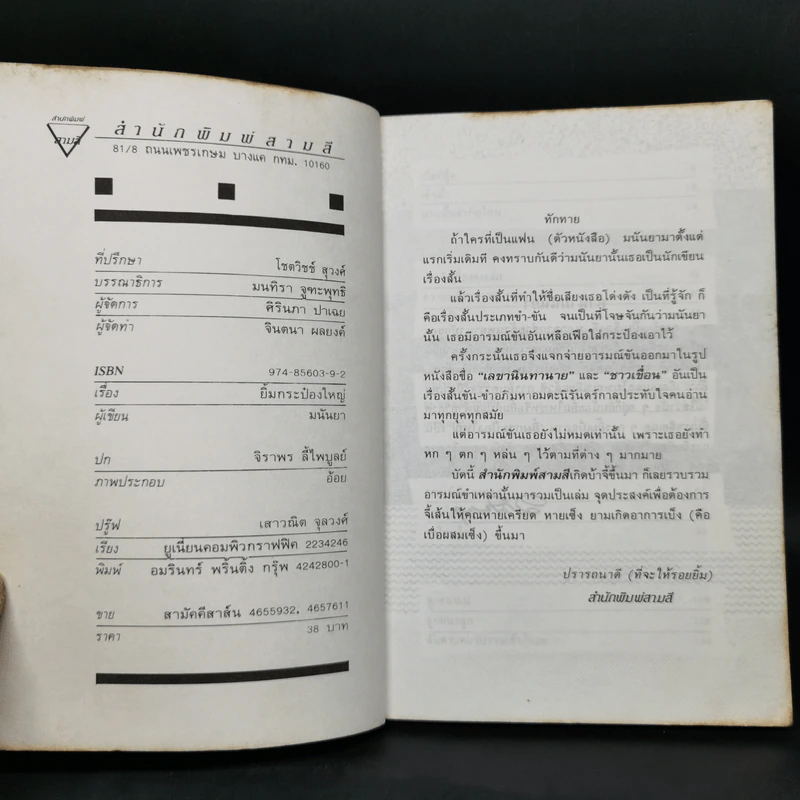 สำนักพิมพ์
สามสี
สำนักพิมพ์สามสี
81/8 ถนนเพชรเกษม บางแค กทม. 10160
ที่ปรึกษา โชตวิชช์ สุวงศ์
บรรณาธิการ มนทิรา จูฑะพุทธิ
ผู้จัดการ ศิรินภา ปาเฉย
ผู้จัดทำ จินตนา ผลยงค์
ISBN 974-85603-9-2
เรื่อง ยิ้มกระป๋องใหญ่
ผู้เขียน มนันยา
ปก จิราพร ลี้ไพบูลย์
ภาพประกอบ อ้อย
ปรู๊ฟ เสาวณิต จุลวงศ์
เรียง ยูเนี่ยนคอมพิวกราฟฟิค 2234246
พิมพ์ อมรินทร์ พริ้นติ้ง กรุ๊พ 4242800-1
ขาย สามัคคีสาส์น 4655932, 4657611
ราคา 38 บาท
ทักทาย
ถ้าใครที่เป็นแฟน (ตัวหนังสือ) มนันยามาตั้งแต่
แรกเริ่มเดิมที คงทราบกันดีว่ามนันยานั้นเธอเป็นนักเขียน
เรื่องสั้น
แล้วเรื่องสั้นที่ทำให้ชื่อเสียงเธอโด่งดัง เป็นที่รู้จัก ก็
คือเรื่องสั้นประเภทขำ-ขัน จนเป็นที่โจษจันกันว่ามนันยา
นั้น เธอมีอารมณ์ขันอันเหลือเฟือใส่กระป๋องเอาไว้
ครั้งกระนั้นเธอจึงแจกจ่ายอารมณ์ขันออกมาในรูป
หนังสือชื่อ “เลขานินทานาย” และ “ชาวเขื่อน” อันเป็น
เรื่องสั้นขัน-ขำอภิมหาอมตะนิรันดร์กาลประทับใจคนอ่าน
มาทุกยุคทุกสมัย
แต่อารมณ์ขันเธอยังไม่หมดเท่านั้น เพราะเธอยังทำ
หก ๆ ตก ๆ หล่น ๆ ไว้ตามที่ต่าง ๆ มากมาย
บัดนี้ สำนักพิมพ์สามสีเกิดบ้าจี้ขึ้นมา ก็เลยรวบรวม
อารมณ์ขำเหล่านั้นมารวมเป็นเล่ม จุดประสงค์เพื่อต้องการ
จี้เส้นให้คุณหายเครียด หายเซ็ง ยามเกิดอาการเบ็ง (คือ
เบื่อผสมเซ็ง) ขึ้นมา
ปรารถนาดี (ที่จะให้รอยยิ้ม)
สำนักพิมพ์สามสี